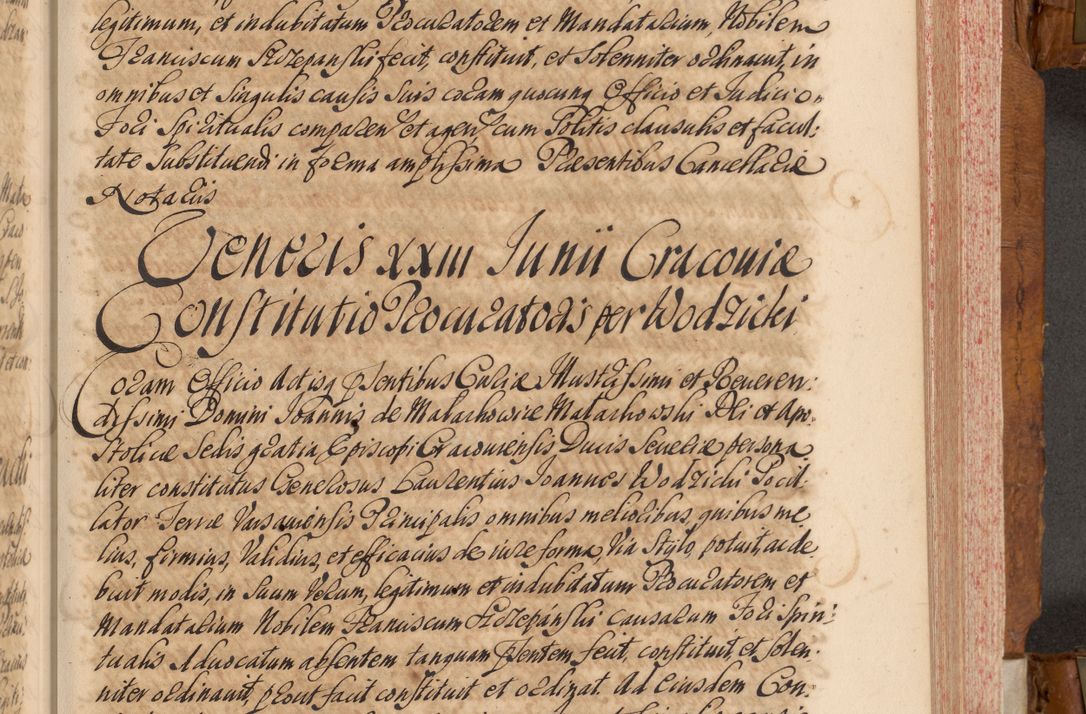 legitimum, et indubitatum Procuratorem et Mandatarium, Nobilem
Franciscum Skrzepinski fecit, constituit, et Solenniter ordinauit, in
omnibus et Singulis causis Suis coram quocunq Officio et Judicio
Fori Spiritualis comparen et agen cum Politis clausulis et facul:
tate Substituendi in forma amplissima Præsentibus Cancellariæ
Notariis
Veneris XXIII Junii Cracouiæ
Constitutio Procuratoris per Wodzicki
Coram Officio Actisq psentibus Curiæ Illustrissimi et Reueren:
dissimi Domini Joannis de Malachowice Malachowski Dei et Apo-
stolicæ Sedis gratia Episcopi Cracouiensis, Ducis Seueriæ persona
liter constitutus Generosus Laurentius Joannes Wodzicki Pocil:
lator Terræ Varsauiensis Principalis omnibus melioribus, quibus me
lius, firmius, Validius, et efficacius de iure forma, Via Stylo, potuit, ac de
buit modis, in Suum Verum, legitimum et indubitatum Procuratorem et
Mandatarium Nobilem Franciscum Skrzepinski causarum Fori Spiri:
tualis Aduocatum absentem tanquam psentem fecit, constituit et Solen-
niter ordinauit, prout facit constituit et ordinat. Ad eiusdem Con: